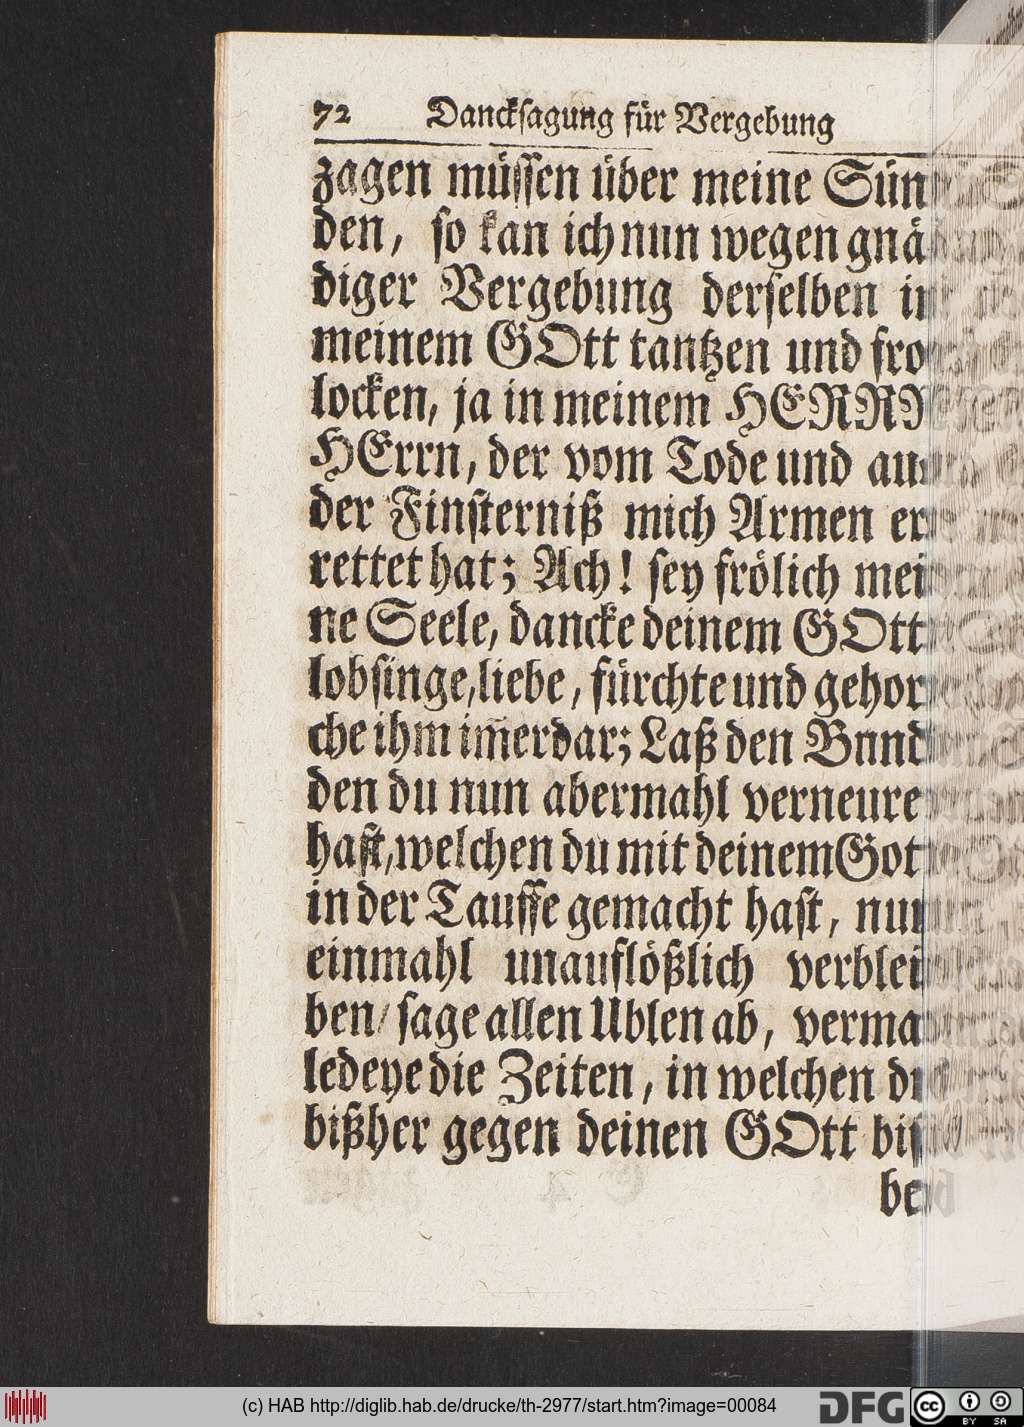 72 Dancksagung für Vergebung
zagen müssen über meine Sün
den, so kan ich nun wegen gnä
diger Vergebung derselben in
meinem GOtt tantzen und fro
locken, ja in meinem HERRN
HErrn, der vom Tode und aus
der Finsterniß mich Armen er
rettet hat; Ach! sey frölich mei
ne Seele, dancke deinem GOtt
lobsinge, liebe, fürchte und gehor
che ihm im̄erdar; Laß den Bnnd
den du nun abermahl verneure
hast, welchen du mit deinem Got
in der Tauffe gemacht hast, nun
einmahl unauflößlich verblei
ben / sage allen Ublen ab, verma
ledeye die Zeiten, in welchen du
bißher gegen deinen GOtt bis
be
(c) HAB http://diglib.hab.de/drucke/th-2977/start.htm?image=00084
DFG
cc BY SA